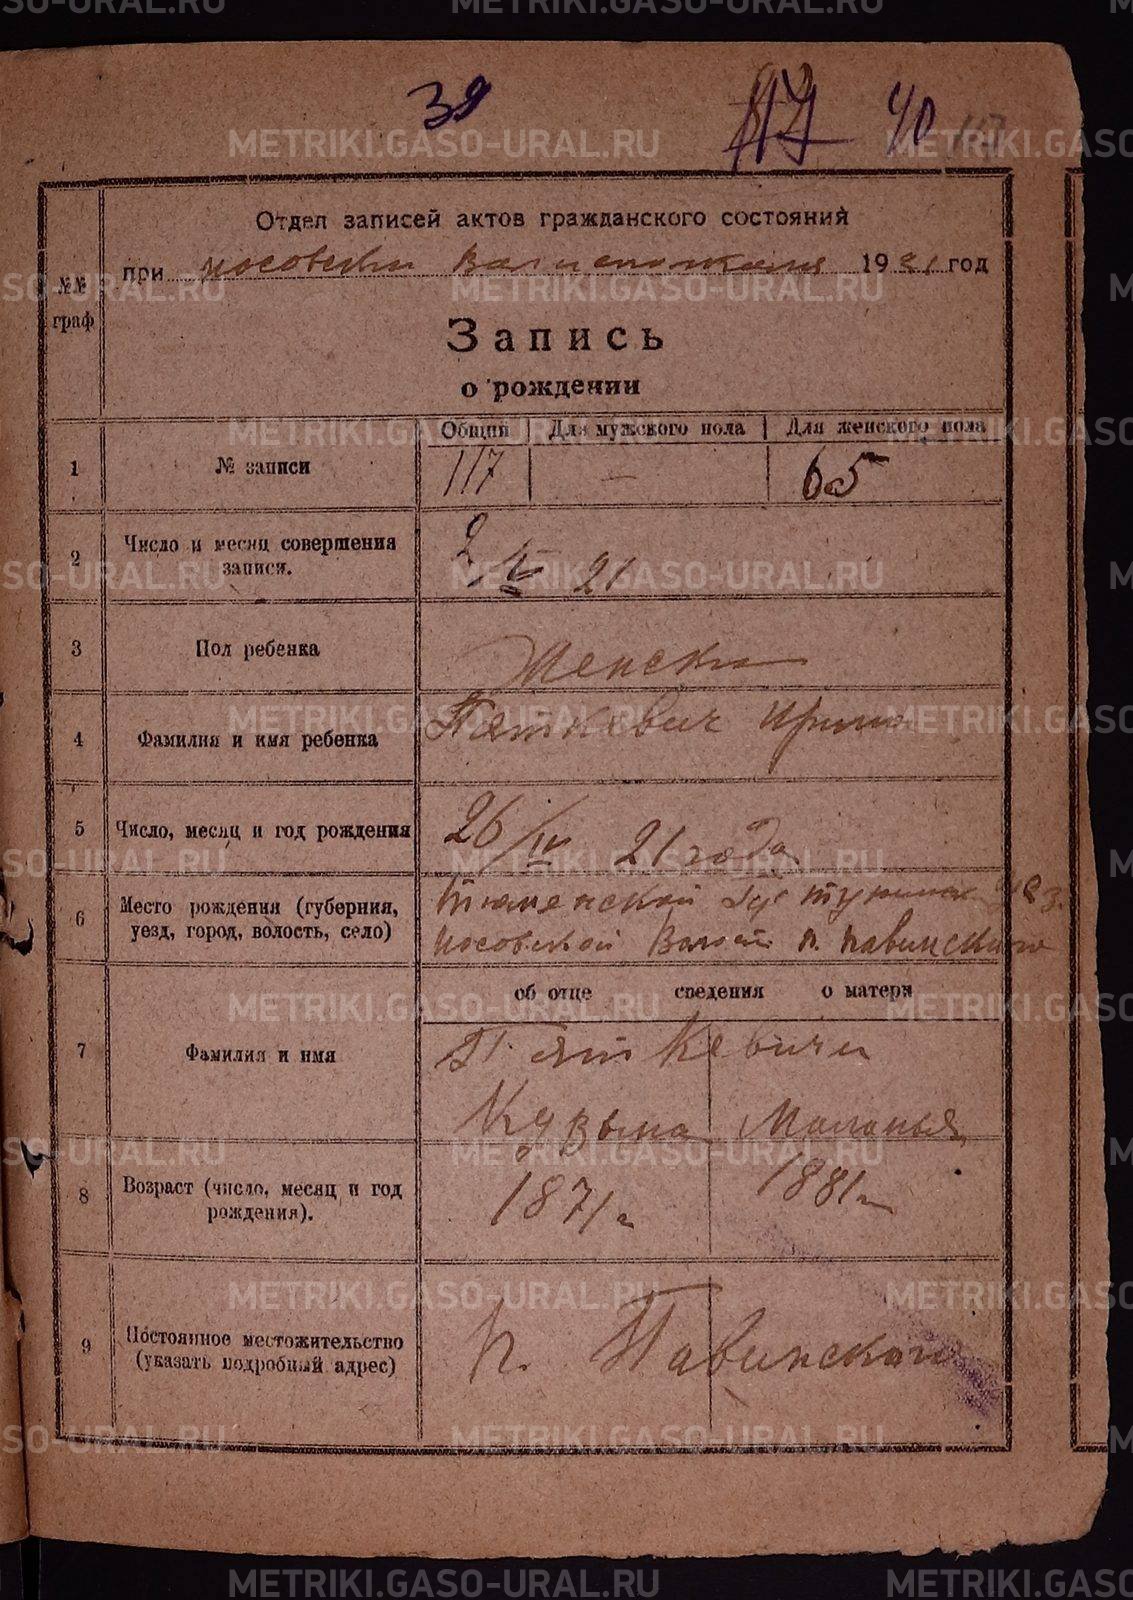 39 117 40 117
Отдел записей актов гражданского состояния
при Носовском Волисполкоме 1921 год
№№ граф
Запись
о рождении
Общий Для мужского пола Для женского пола
1 № записи 117 — 65
2 Число и месяц совершения
записи.
2/V 21
3 Пол ребенка Женски
4 Фамилия и имя ребенка Пяткевич Ирина
5 Число, месяц и год рождения 26/IV 21 года
6 Место рождения (губерния,
уезд, город, волость, село)
Тюменской Губ Туринск Уез.
Носовской Волости п. Павинского
об отце сведения о матери
7 Фамилия и имя Пяткевичи
Кузьма Маланья
8 Возраст (число, месяц и год
рождения).
1871 г 1881 г
9 Постоянное местожительство
(указать подробный адрес)
п. Павинской
METRIKI.GASO-URAL.RU